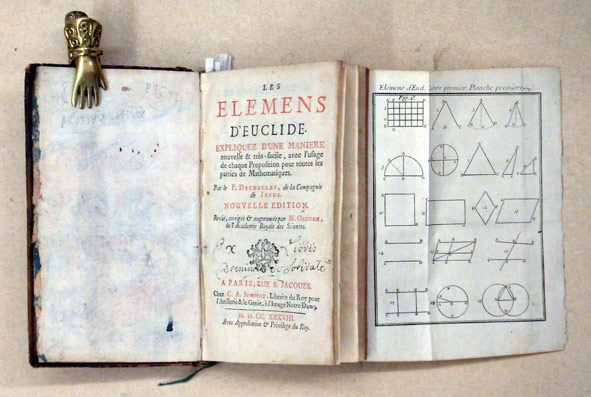 LES
ELEMENS
D'EUCLIDE.
EXPLIQUEZ D'UNE MANIERE
nouvelle & très-facile, avec l'usage
de chaque Proposition pour toutes les
parties de Mathematiques.
Par le P. DECHALLES, de la Compagnie
de JESUS.
NOUVELLE EDITION.
Revûë, corrigée & augmentée par M. OZANAM,
de l'Academie Royale des Sciences.
Ex Libris
A PARIS, RUE S. JACQUES.
Chez C. A. JOMBERT, Libraire du Roy pour
l'Artillerie & le Genie, à l'Image Notre-Dame.
M. D. CC. XXXVIII.
Avec Approbation & Privilege du Roy.
Elemens d'Eud. Livre premier. Planche premiere.